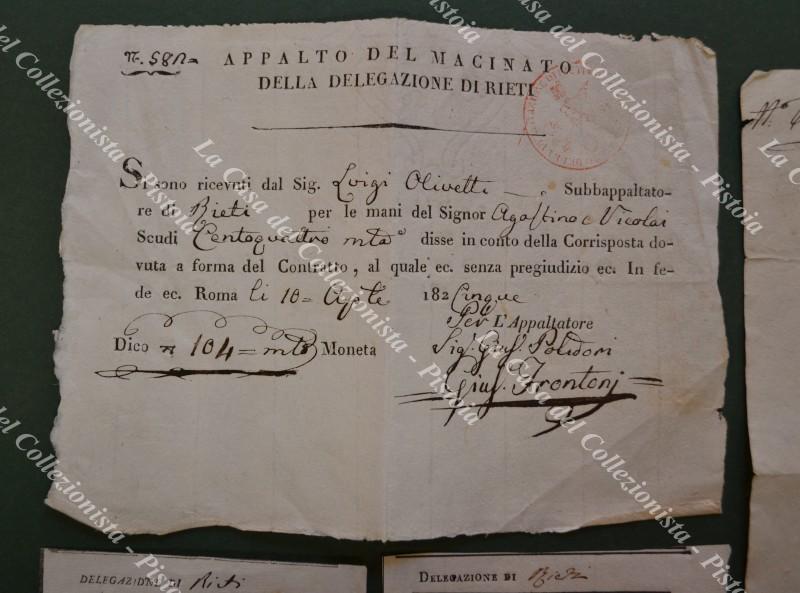 N. 581=
APPALTO DEL MACINATO
DELLA DELEGAZIONE DI RIETI
Si sono ricevuti dal Sig. Luigi Olivetti Subbappaltato-
re di Rieti per le mani del Signor Agostino Nicolai
Scudi Centoquattro mta disse in conto della Corrisposta do-
vuta a forma del Contratto, al quale ec. senza pregiudizio ec. In fe-
de ec. Roma li 10= Aple 182 Cinque
Per L'Appaltatore
Dico 104= mta Moneta Sig. Gius. Polidori
Gius. Frontonj
DELEGAZIONE DI Rieti
DELEGAZIONE DI Rieti
La Casa del Collezionista - Pistoia